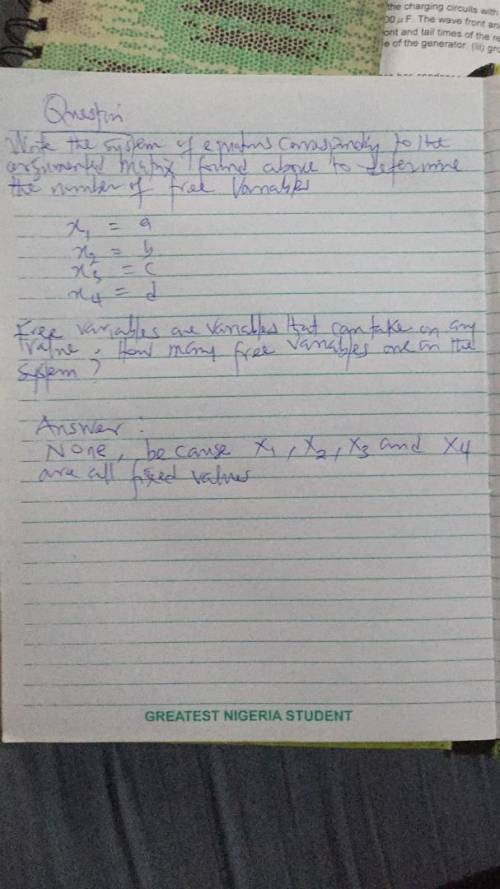 the charging circuits with
00 μF. The wave front and
ont and tail times of the re
e of the generator. (iii) gro
Question
Write the system of equations corresponding to the
argumented matrix found above to determine
the number of free variables
x₁ = a
x₂ = b
x₃ = c
x₄ = d
Free variables are variables that can take on any
value. How many free variables are in the
system?
Answer:
None, because x₁, x₂, x₃ and x₄
are all fixed values
GREATEST NIGERIA STUDENT